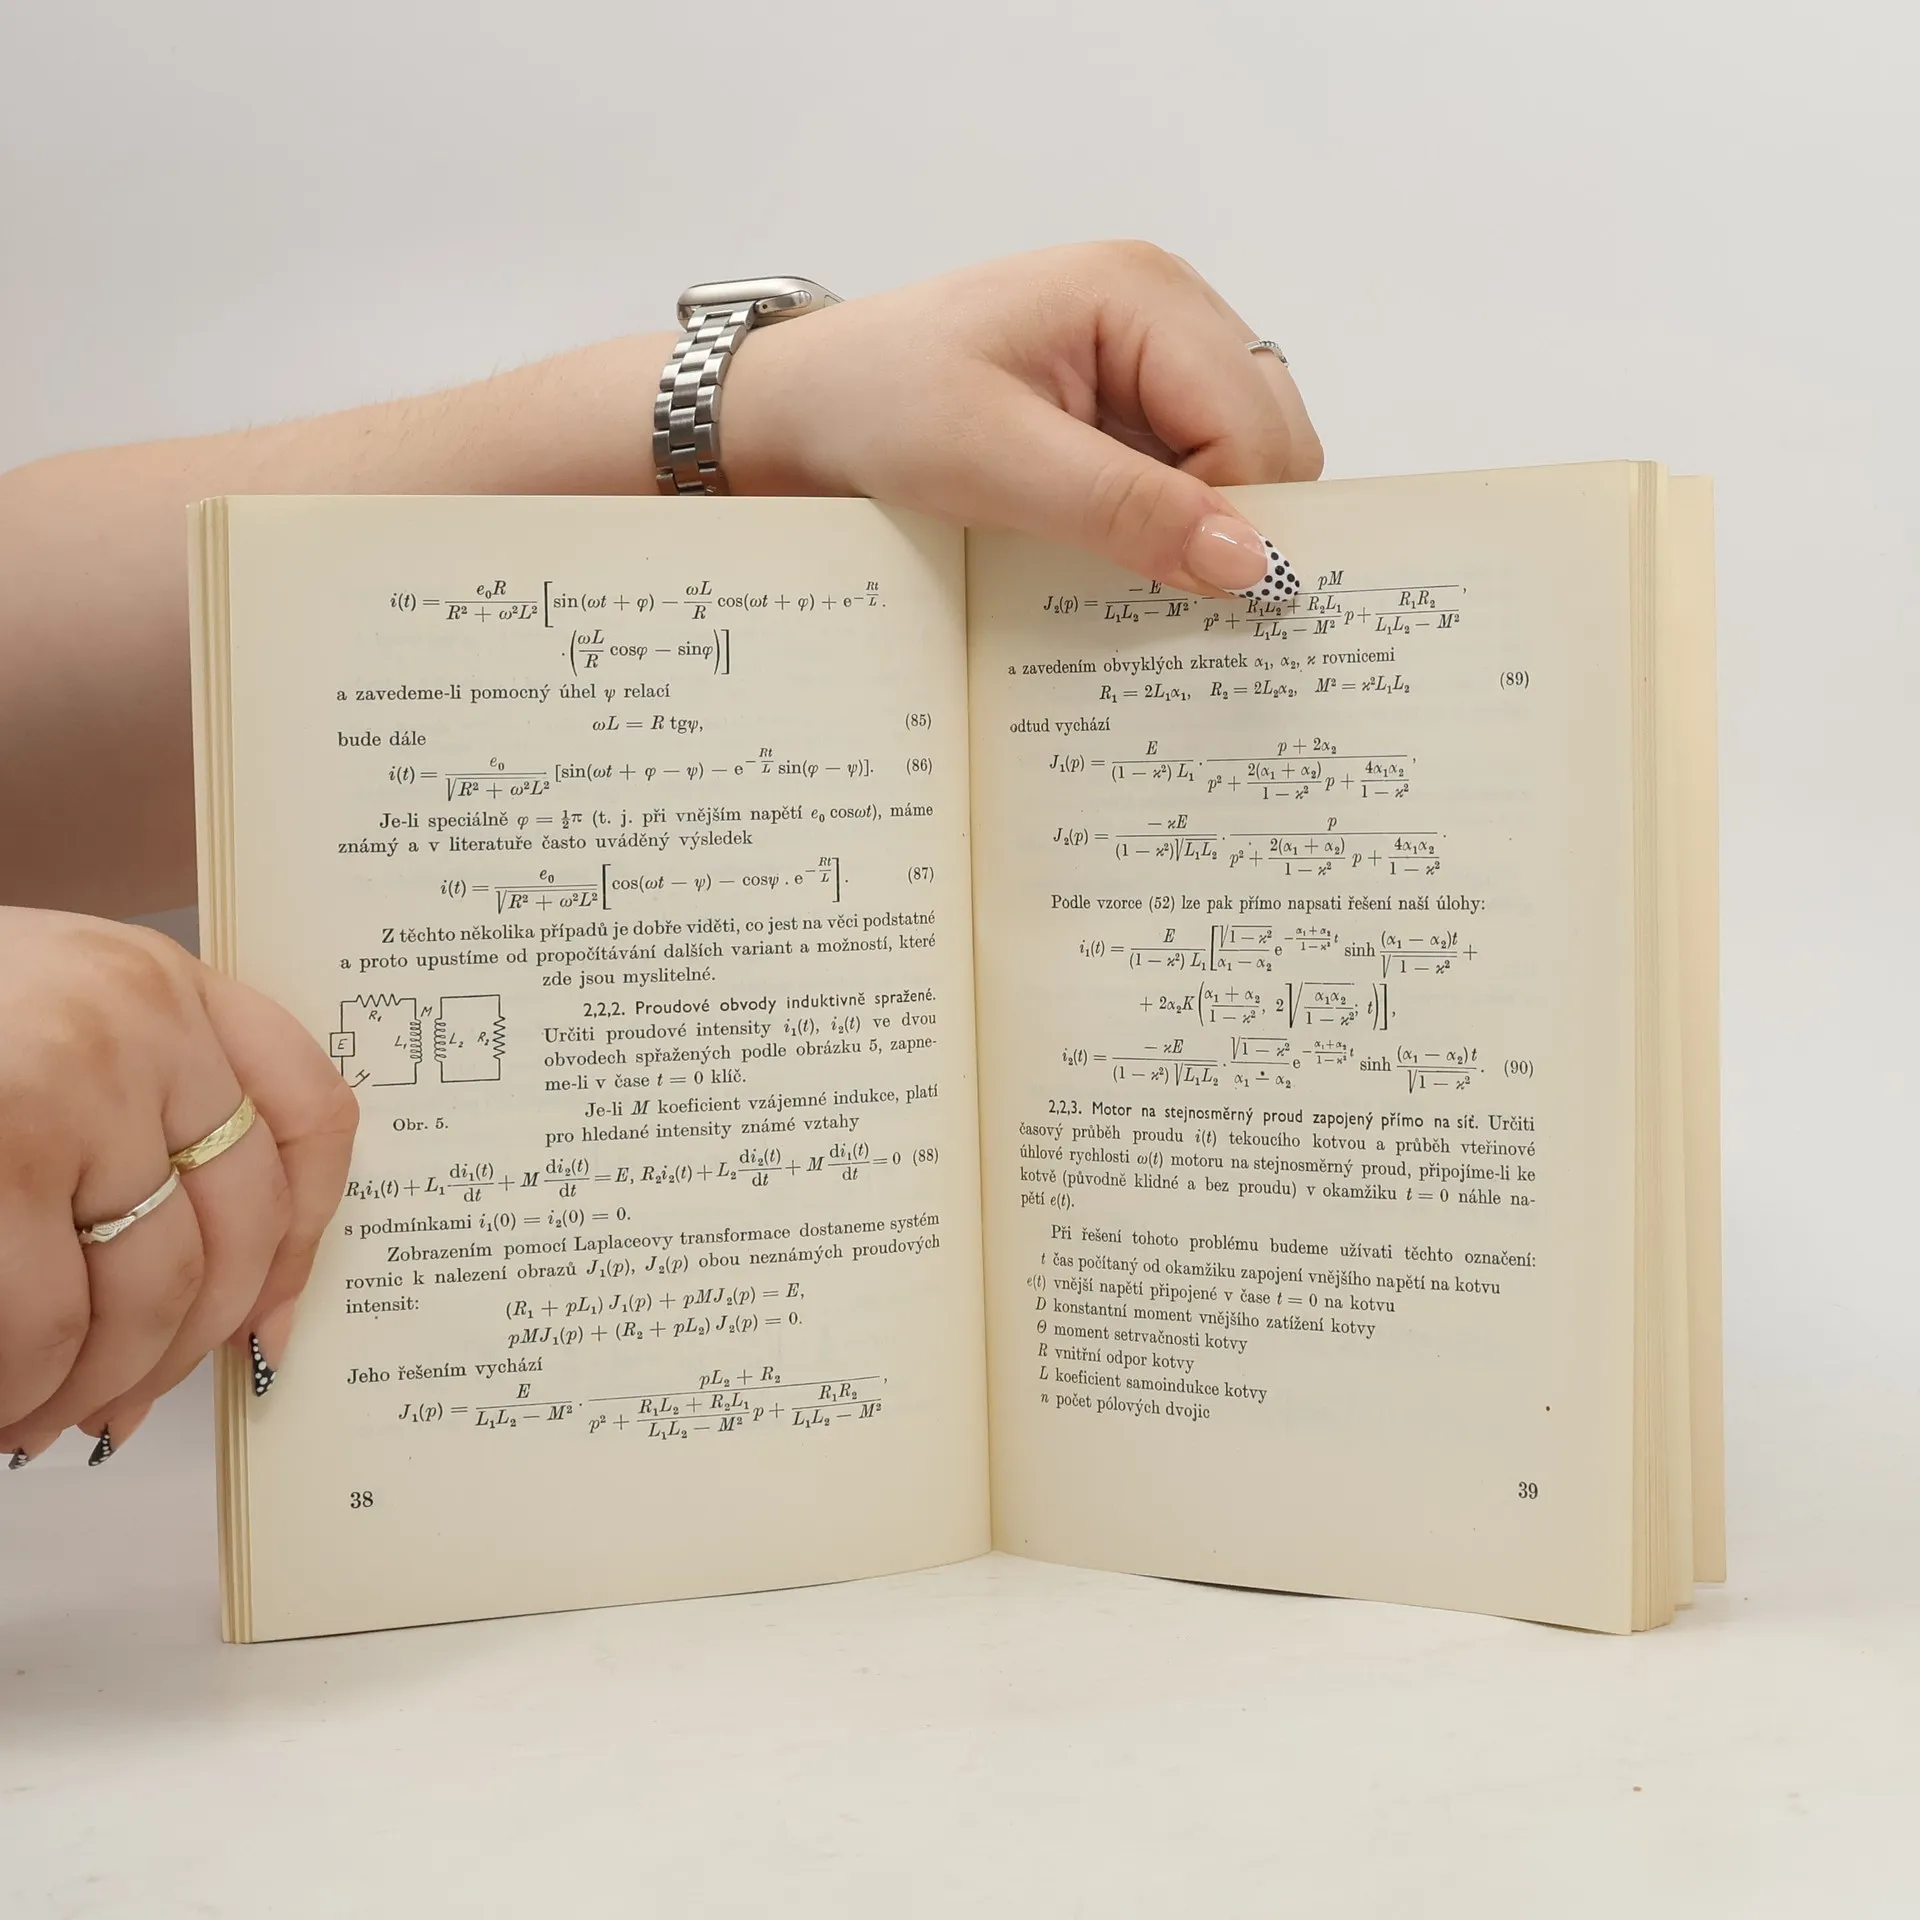 i(t) = e₀R / (R² + ω²L²) [sin(ωt + φ) − ωL/R cos(ωt + φ) + e^(−Rt/L) .
. (ωL/R cosφ − sinφ)]
a zavedeme-li pomocný úhel ψ relací
ωL = R tgψ, (85)
bude dále
i(t) = e₀ / √(R² + ω²L²) [sin(ωt + φ − ψ) − e^(−Rt/L) sin(φ − ψ)]. (86)
Je-li speciálně φ = ½π (t. j. při vnějším napětí e₀ cosωt), máme
známý a v literatuře často uváděný výsledek
i(t) = e₀ / √(R² + ω²L²) [cos(ωt − ψ) − cosψ . e^(−Rt/L)]. (87)
Z těchto několika případů je dobře viděti, co jest na věci podstatné
a proto upustíme od propočítávání dalších variant a možností, které
zde jsou myslitelné.
2,2,2. Proudové obvody induktivně spražené.
Určiti proudové intensity i₁(t), i₂(t) ve dvou
obvodech spřažených podle obrázku 5, zapne-
me-li v čase t = 0 klíč.
R₁ M
E L₁ L₂ R₂
Obr. 5.
Je-li M koeficient vzájemné indukce, platí
pro hledané intensity známé vztahy
R₁i₁(t) + L₁ di₁(t)/dt + M di₂(t)/dt = E, R₂i₂(t) + L₂ di₂(t)/dt + M di₁(t)/dt = 0 (88)
s podmínkami i₁(0) = i₂(0) = 0.
Zobrazením pomocí Laplaceovy transformace dostaneme systém
rovnic k nalezení obrazů J₁(p), J₂(p) obou neznámých proudových
intensit:
(R₁ + pL₁) J₁(p) + pMJ₂(p) = E,
pMJ₁(p) + (R₂ + pL₂) J₂(p) = 0.
Jeho řešením vychází
J₁(p) = E / (L₁L₂ − M²) . (pL₂ + R₂) / (p² + (R₁L₂ + R₂L₁)/(L₁L₂ − M²) p + R₁R₂/(L₁L₂ − M²)),
38
J₂(p) = − E / (L₁L₂ − M²) . pM / (p² + (R₁L₂ + R₂L₁)/(L₁L₂ − M²) p + R₁R₂/(L₁L₂ − M²)),
a zavedením obvyklých zkratek α₁, α₂, ϰ rovnicemi
R₁ = 2L₁α₁, R₂ = 2L₂α₂, M² = ϰ²L₁L₂ (89)
odtud vychází
J₁(p) = E / ((1 − ϰ²) L₁) . (p + 2α₂) / (p² + 2(α₁ + α₂)/(1 − ϰ²) p + 4α₁α₂/(1 − ϰ²)),
J₂(p) = − ϰE / ((1 − ϰ²)√(L₁L₂)) . p / (p² + 2(α₁ + α₂)/(1 − ϰ²) p + 4α₁α₂/(1 − ϰ²)).
Podle vzorce (52) lze pak přímo napsati řešení naší úlohy:
i₁(t) = E / ((1 − ϰ²) L₁) [√(1 − ϰ²)/(α₁ − α₂) e^(−(α₁+α₂)/(1−ϰ²) t) sinh (α₁ − α₂)t/√(1 − ϰ²) +
+ 2α₂K ((α₁ + α₂)/(1 − ϰ²), 2√(α₁α₂/(1 − ϰ²)); t)],
i₂(t) = − ϰE / ((1 − ϰ²) √(L₁L₂)) . √(1 − ϰ²)/(α₁ − α₂) e^(−(α₁+α₂)/(1−ϰ²) t) sinh (α₁ − α₂) t/√(1 − ϰ²). (90)
2,2,3. Motor na stejnosměrný proud zapojený přímo na síť. Určiti
časový průběh proudu i(t) tekoucího kotvou a průběh vteřinové
úhlové rychlosti ω(t) motoru na stejnosměrný proud, připojíme-li ke
kotvě (původně klidné a bez proudu) v okamžiku t = 0 náhle na-
pětí e(t).
Při řešení tohoto problému budeme užívati těchto označení:
t čas počítaný od okamžiku zapojení vnějšího napětí na kotvu
e(t) vnější napětí připojené v čase t = 0 na kotvu
D konstantní moment vnějšího zatížení kotvy
Θ moment setrvačnosti kotvy
R vnitřní odpor kotvy
L koeficient samoindukce kotvy
n počet pólových dvojic
39